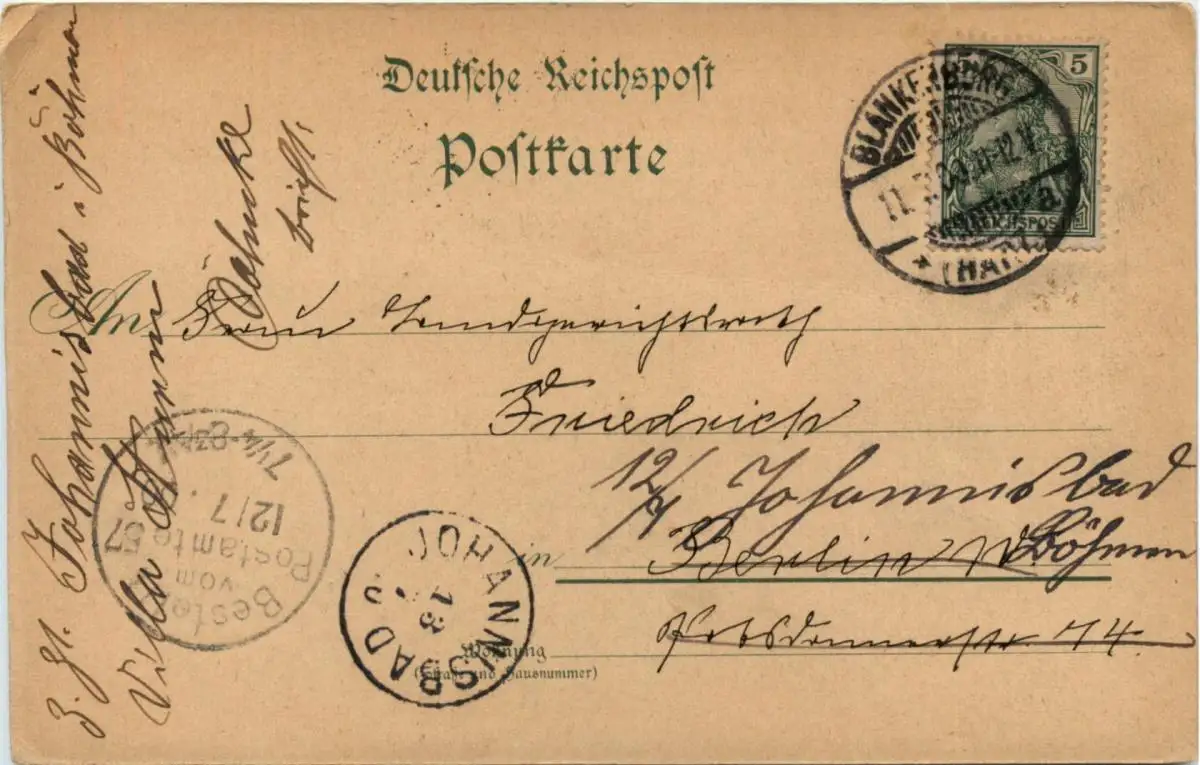 Deutsche Reichspost
Postkarte
5
REICHSPOST
BLANKENBURG
11.7.00.11-12V.
* (HARZ) a
An Frau Landsgerichtsrath
Friedrich
12/7 Johannisbad
in Berlin W. Böhmen
Potsdamerstr. 74.
Wohnung
(Straße und Hausnummer)
JOHANNISBAD
13
7
Bestellt
vom
Postamte 57
12/7.
7 1/4-8 3/4
z. Zt. Johannisbad i. Böhmen
Villa